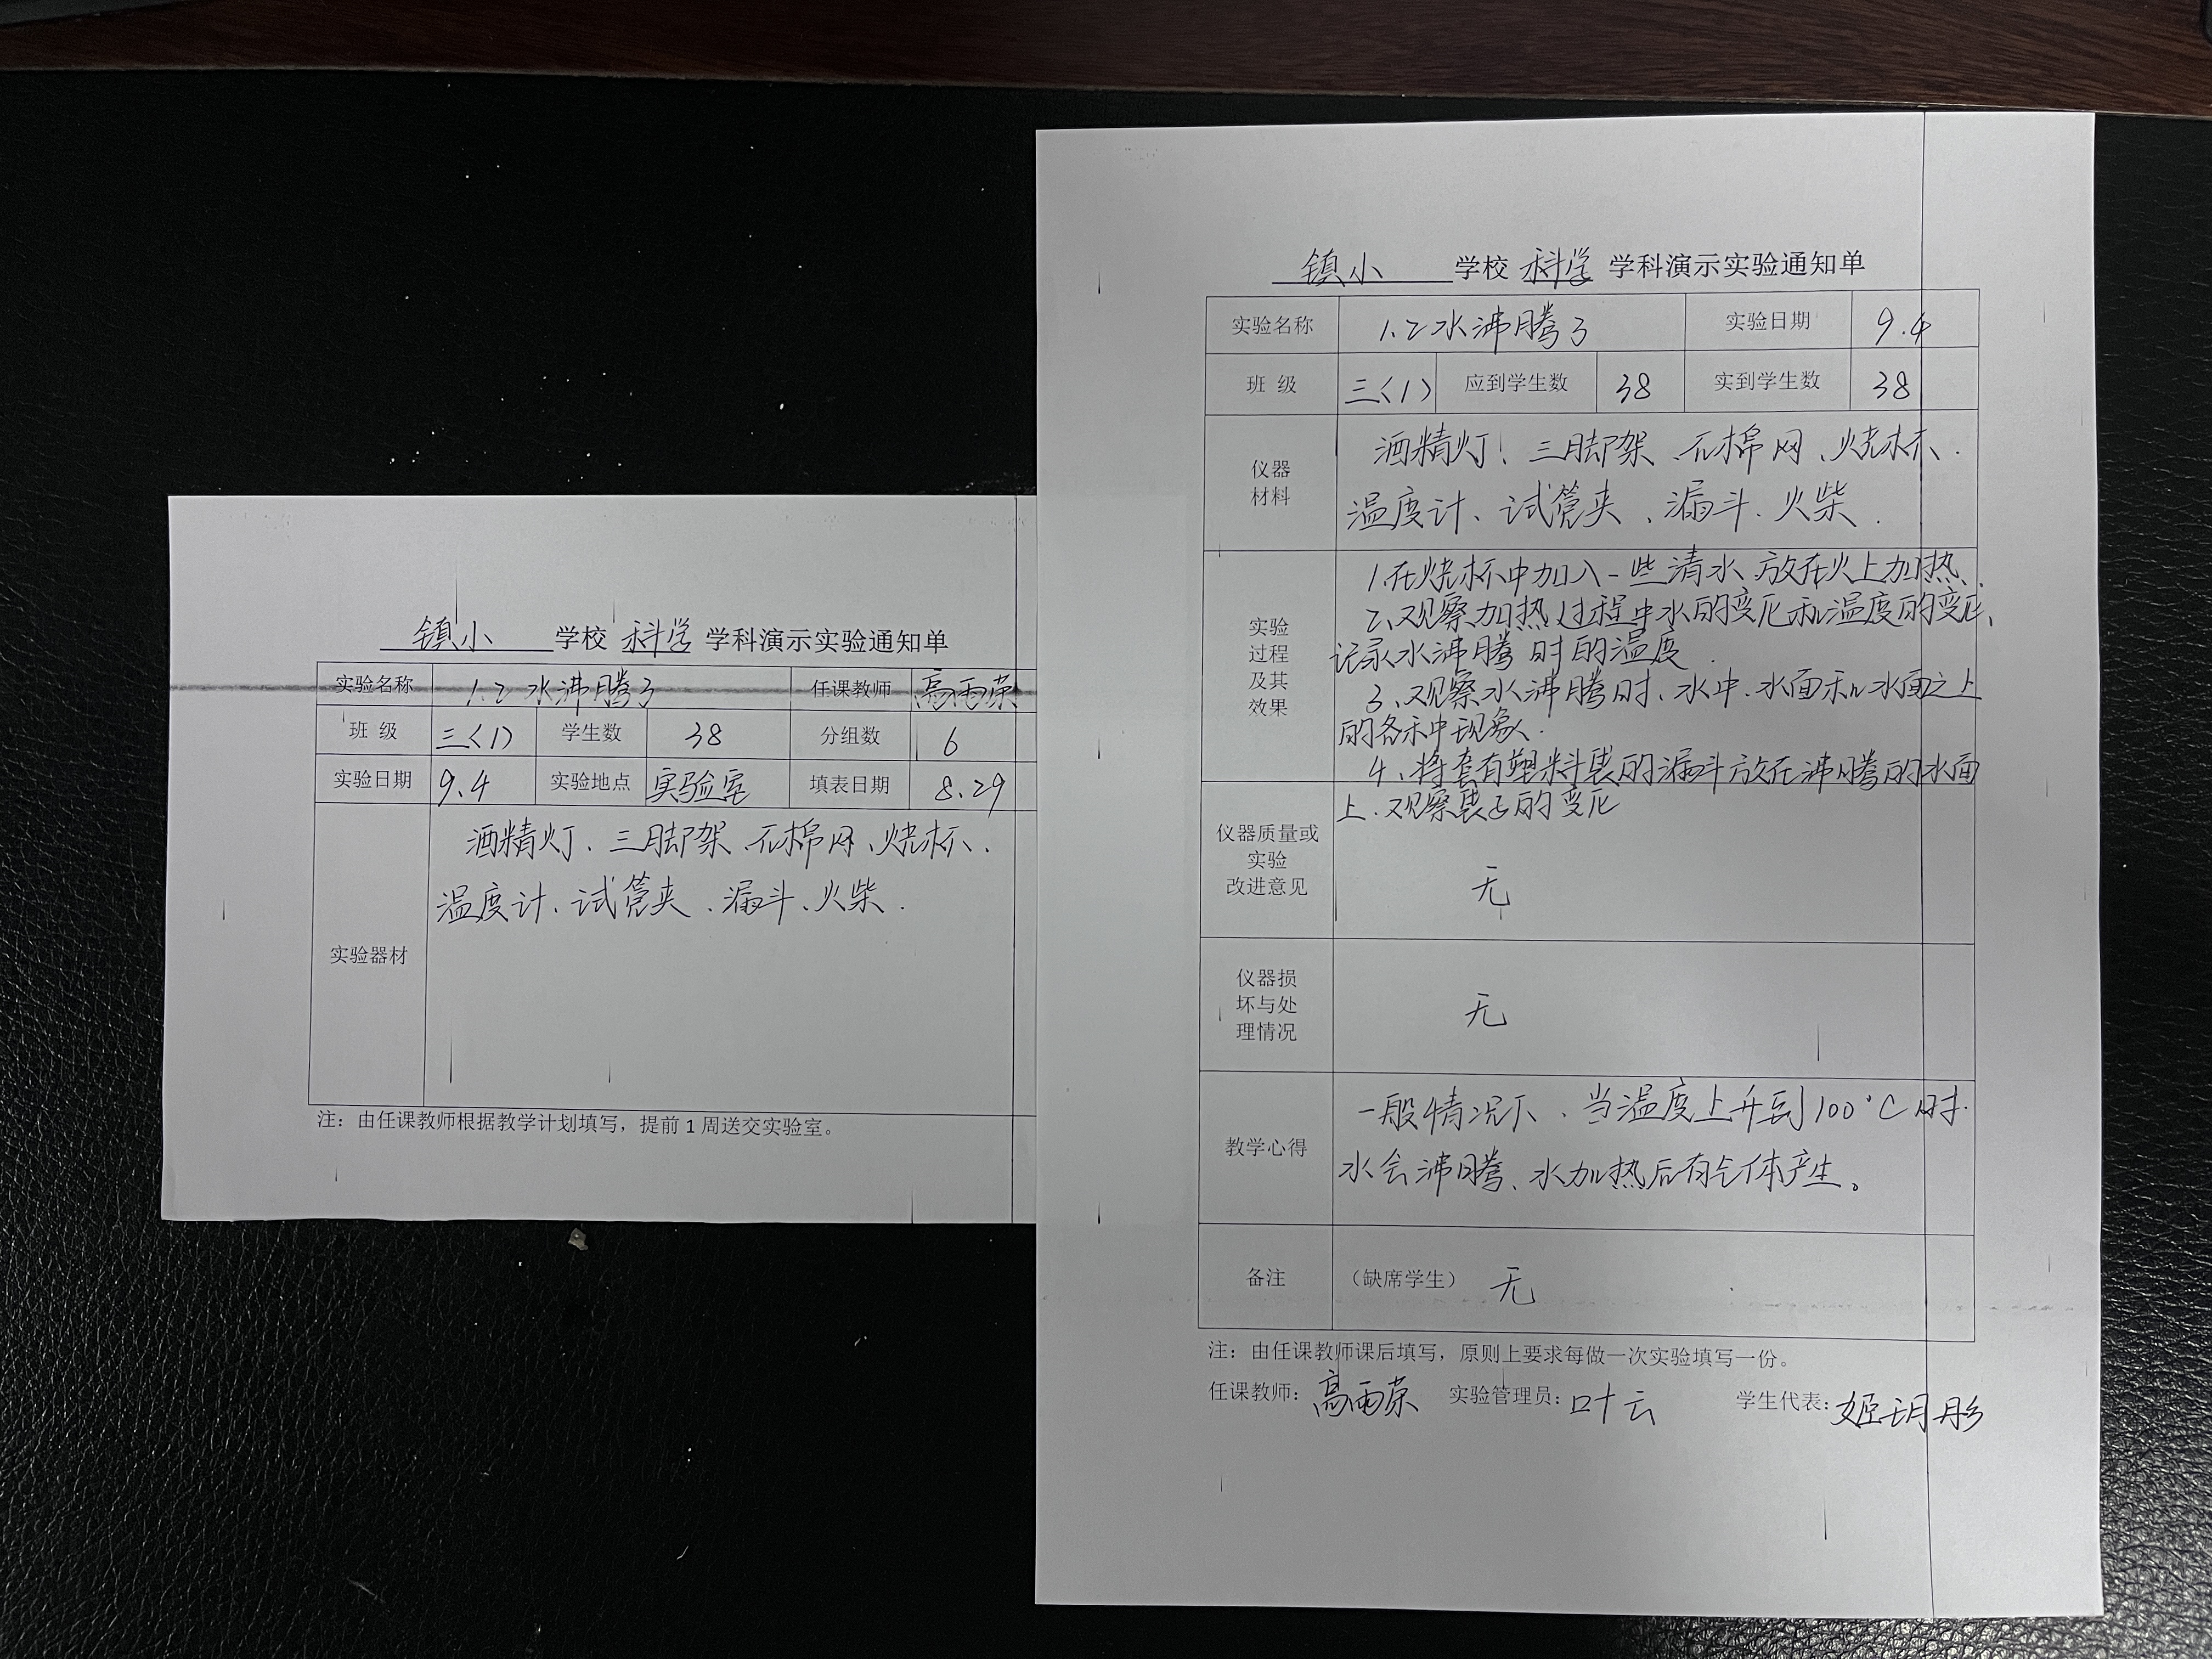 镇小 学校 科学 学科演示实验通知单
实验名称 1.2水沸腾了 任课教师 高雨荣
班 级 三(1) 学生数 38 分组数 6
实验日期 9.4 实验地点 实验室 填表日期 8.29
实验器材
酒精灯、三脚架、石棉网、烧杯、
温度计、试管夹、漏斗、火柴.
注：由任课教师根据教学计划填写，提前1周送交实验室。
镇小 学校 科学 学科演示实验通知单
实验名称 1.2水沸腾了 实验日期 9.4
班 级 三(1) 应到学生数 38 实到学生数 38
仪器
材料
酒精灯、三脚架、石棉网、烧杯、
温度计、试管夹、漏斗、火柴.
实验
过程
及其
效果
1.在烧杯中加入一些清水、放在火上加热、
2、观察加热过程中水的变化和温度的变化、
记录水沸腾时的温度.
3、观察水沸腾时、水中、水面和水面之上
的各种现象.
4、将套有塑料袋的漏斗放在沸腾的水面
上、观察袋子的变化
仪器质量或
实验
改进意见
无
仪器损
坏与处
理情况
无
教学心得
一般情况下、当温度上升到100°C时.
水会沸腾、水加热后有气体产生。
备注 （缺席学生） 无
注：由任课教师课后填写，原则上要求每做一次实验填写一份。
任课教师：高雨荣 实验管理员：叶云 学生代表：姬玥彤